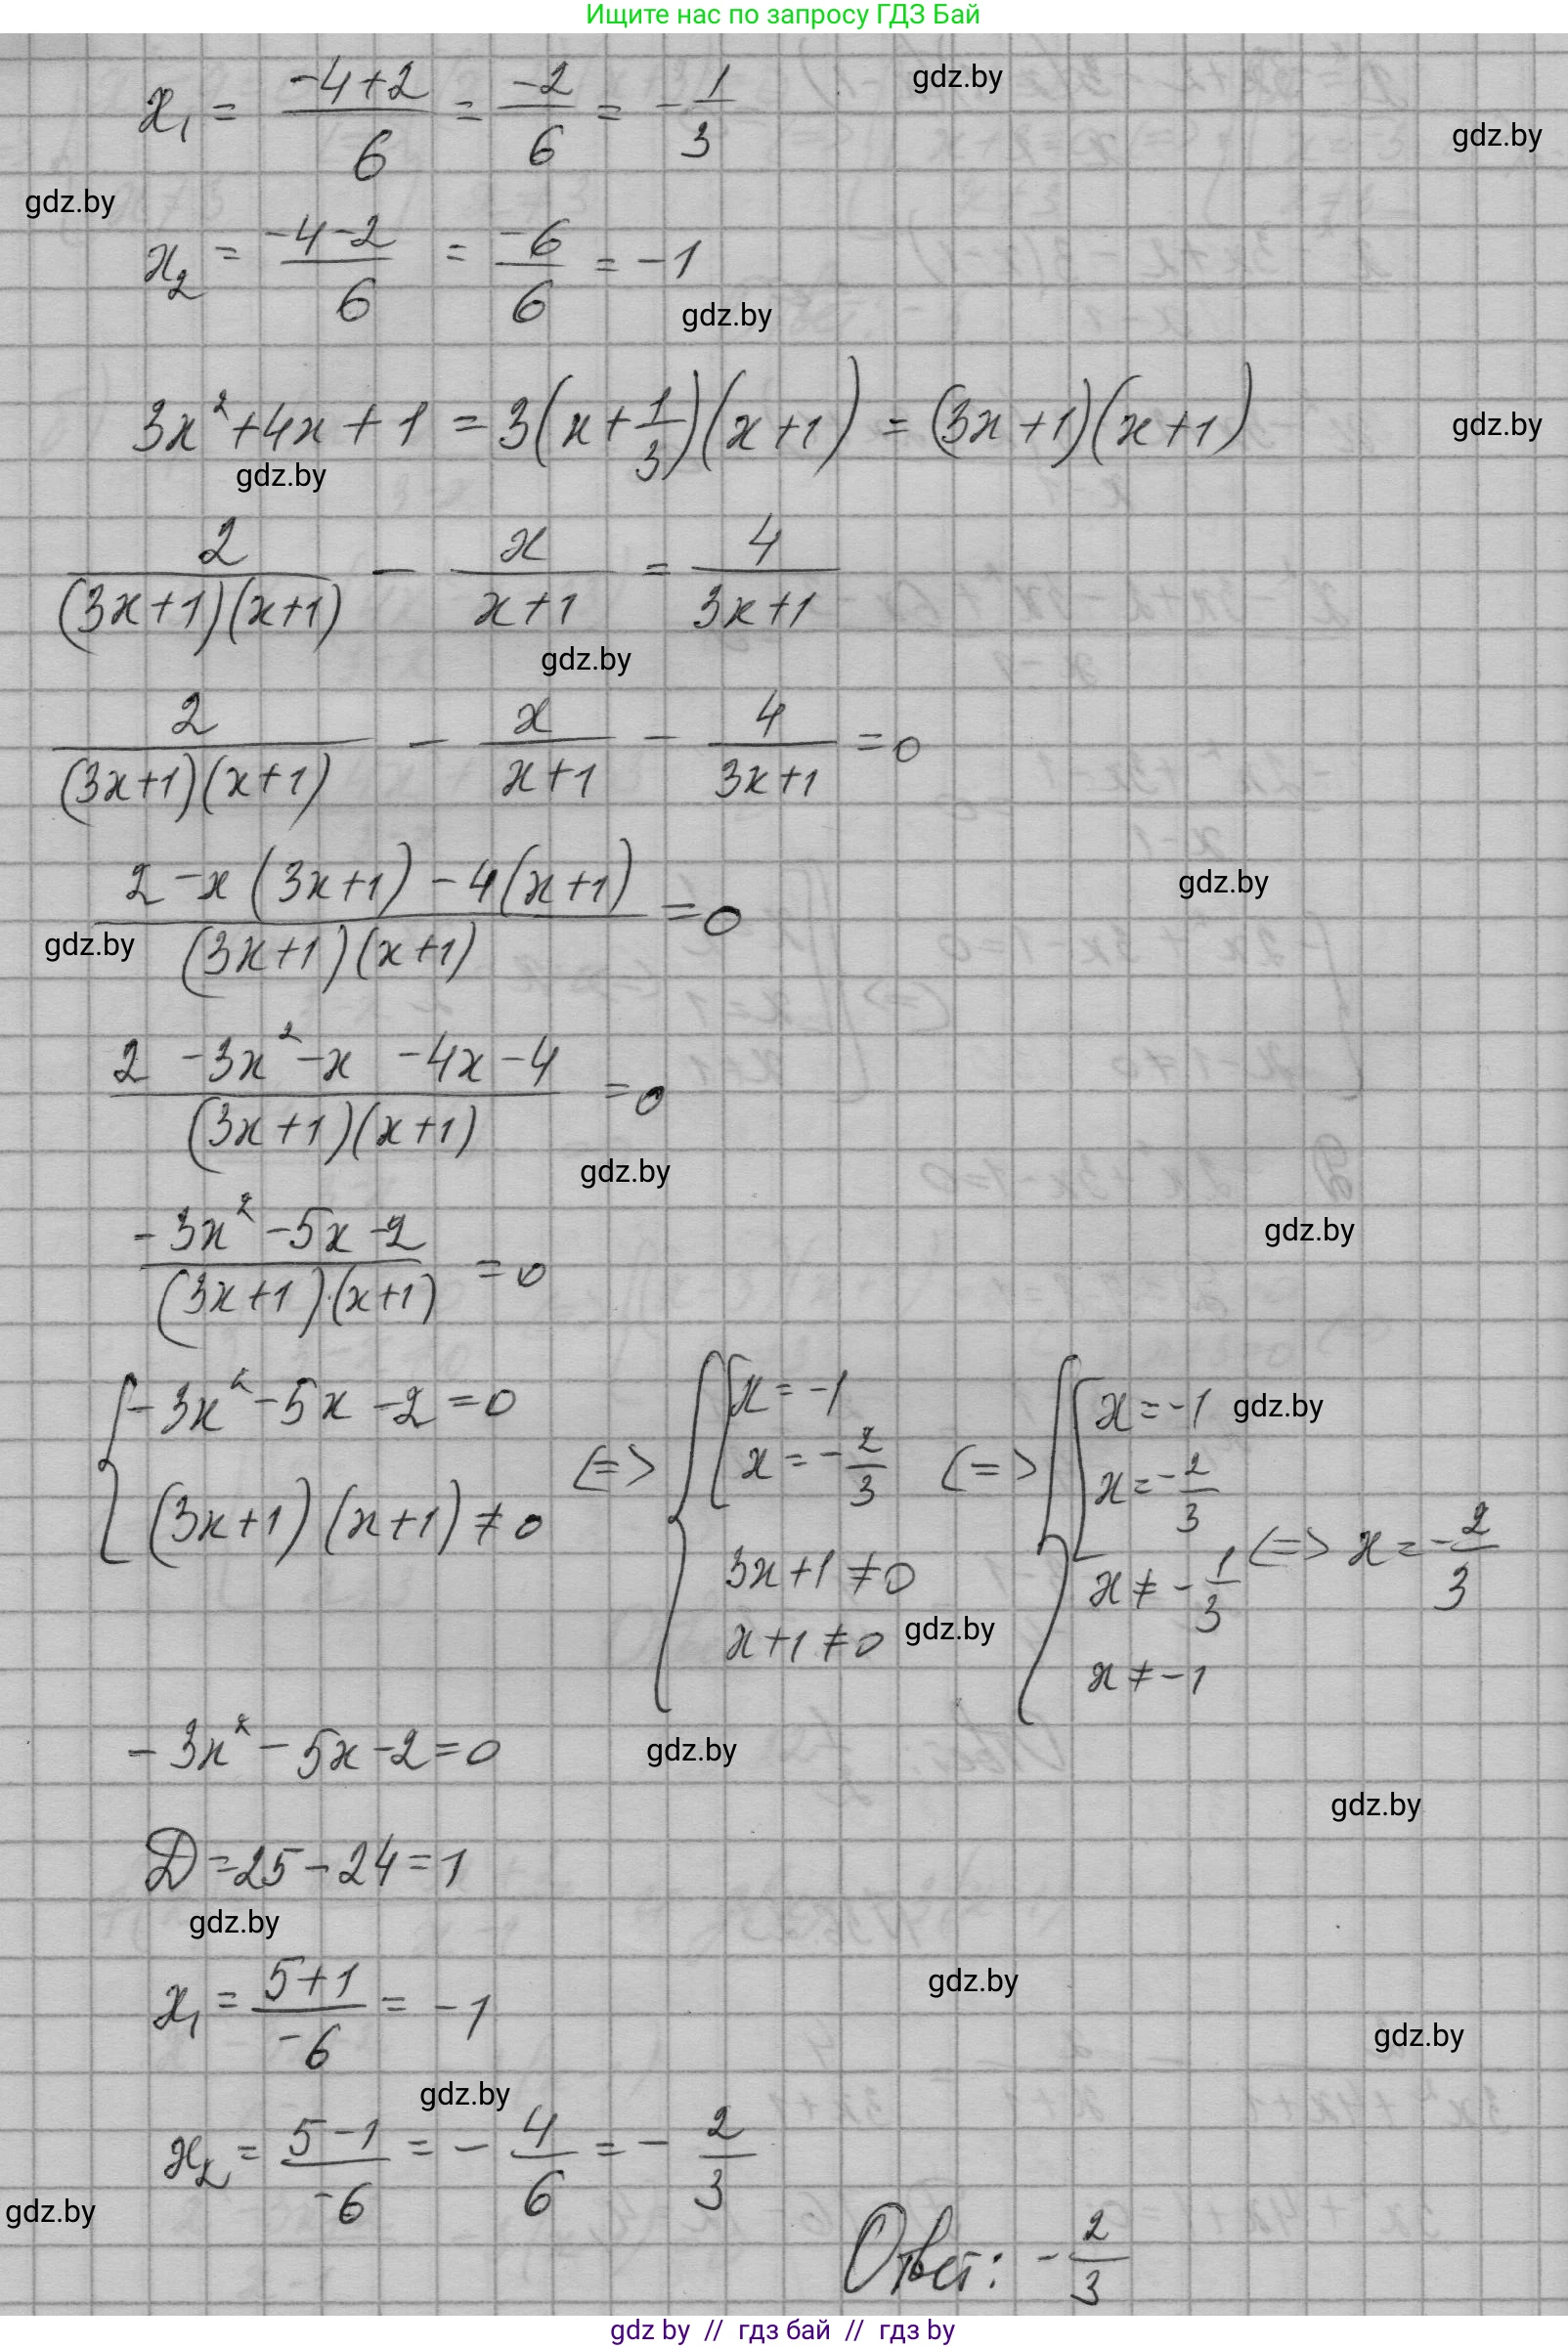 Ищите нас по запросу ГДЗ Бай
x₁ = (-4+2)/6 = -2/6 = -1/3
gdz.by
gdz.by
gdz.by
x₂ = (-4-2)/6 = -6/6 = -1
gdz.by
3x²+4x+1 = 3(x+1/3)(x+1) = (3x+1)(x+1)
gdz.by
gdz.by
2/((3x+1)(x+1)) - x/(x+1) = 4/(3x+1)
gdz.by
2/((3x+1)(x+1)) - x/(x+1) - 4/(3x+1) = 0
(2-x(3x+1)-4(x+1))/((3x+1)(x+1)) = 0
gdz.by
gdz.by
(2-3x²-x-4x-4)/((3x+1)(x+1)) = 0
gdz.by
(-3x²-5x-2)/((3x+1)(x+1)) = 0
gdz.by
{ -3x²-5x-2=0
(3x+1)(x+1)≠0
<=> { [ x=-1
x=-2/3
3x+1≠0
x+1≠0
gdz.by
<=> { [ x=-1
gdz.by
x=-2/3
x≠-1/3
x≠-1
<=> x=-2/3
-3x²-5x-2=0
gdz.by
gdz.by
D=25-24=1
gdz.by
x₁ = (5+1)/-6 = -1
gdz.by
gdz.by
gdz.by
x₂ = (5-1)/-6 = -4/6 = -2/3
gdz.by
Ответ: -2/3
gdz.by // гдз бай // гдз by